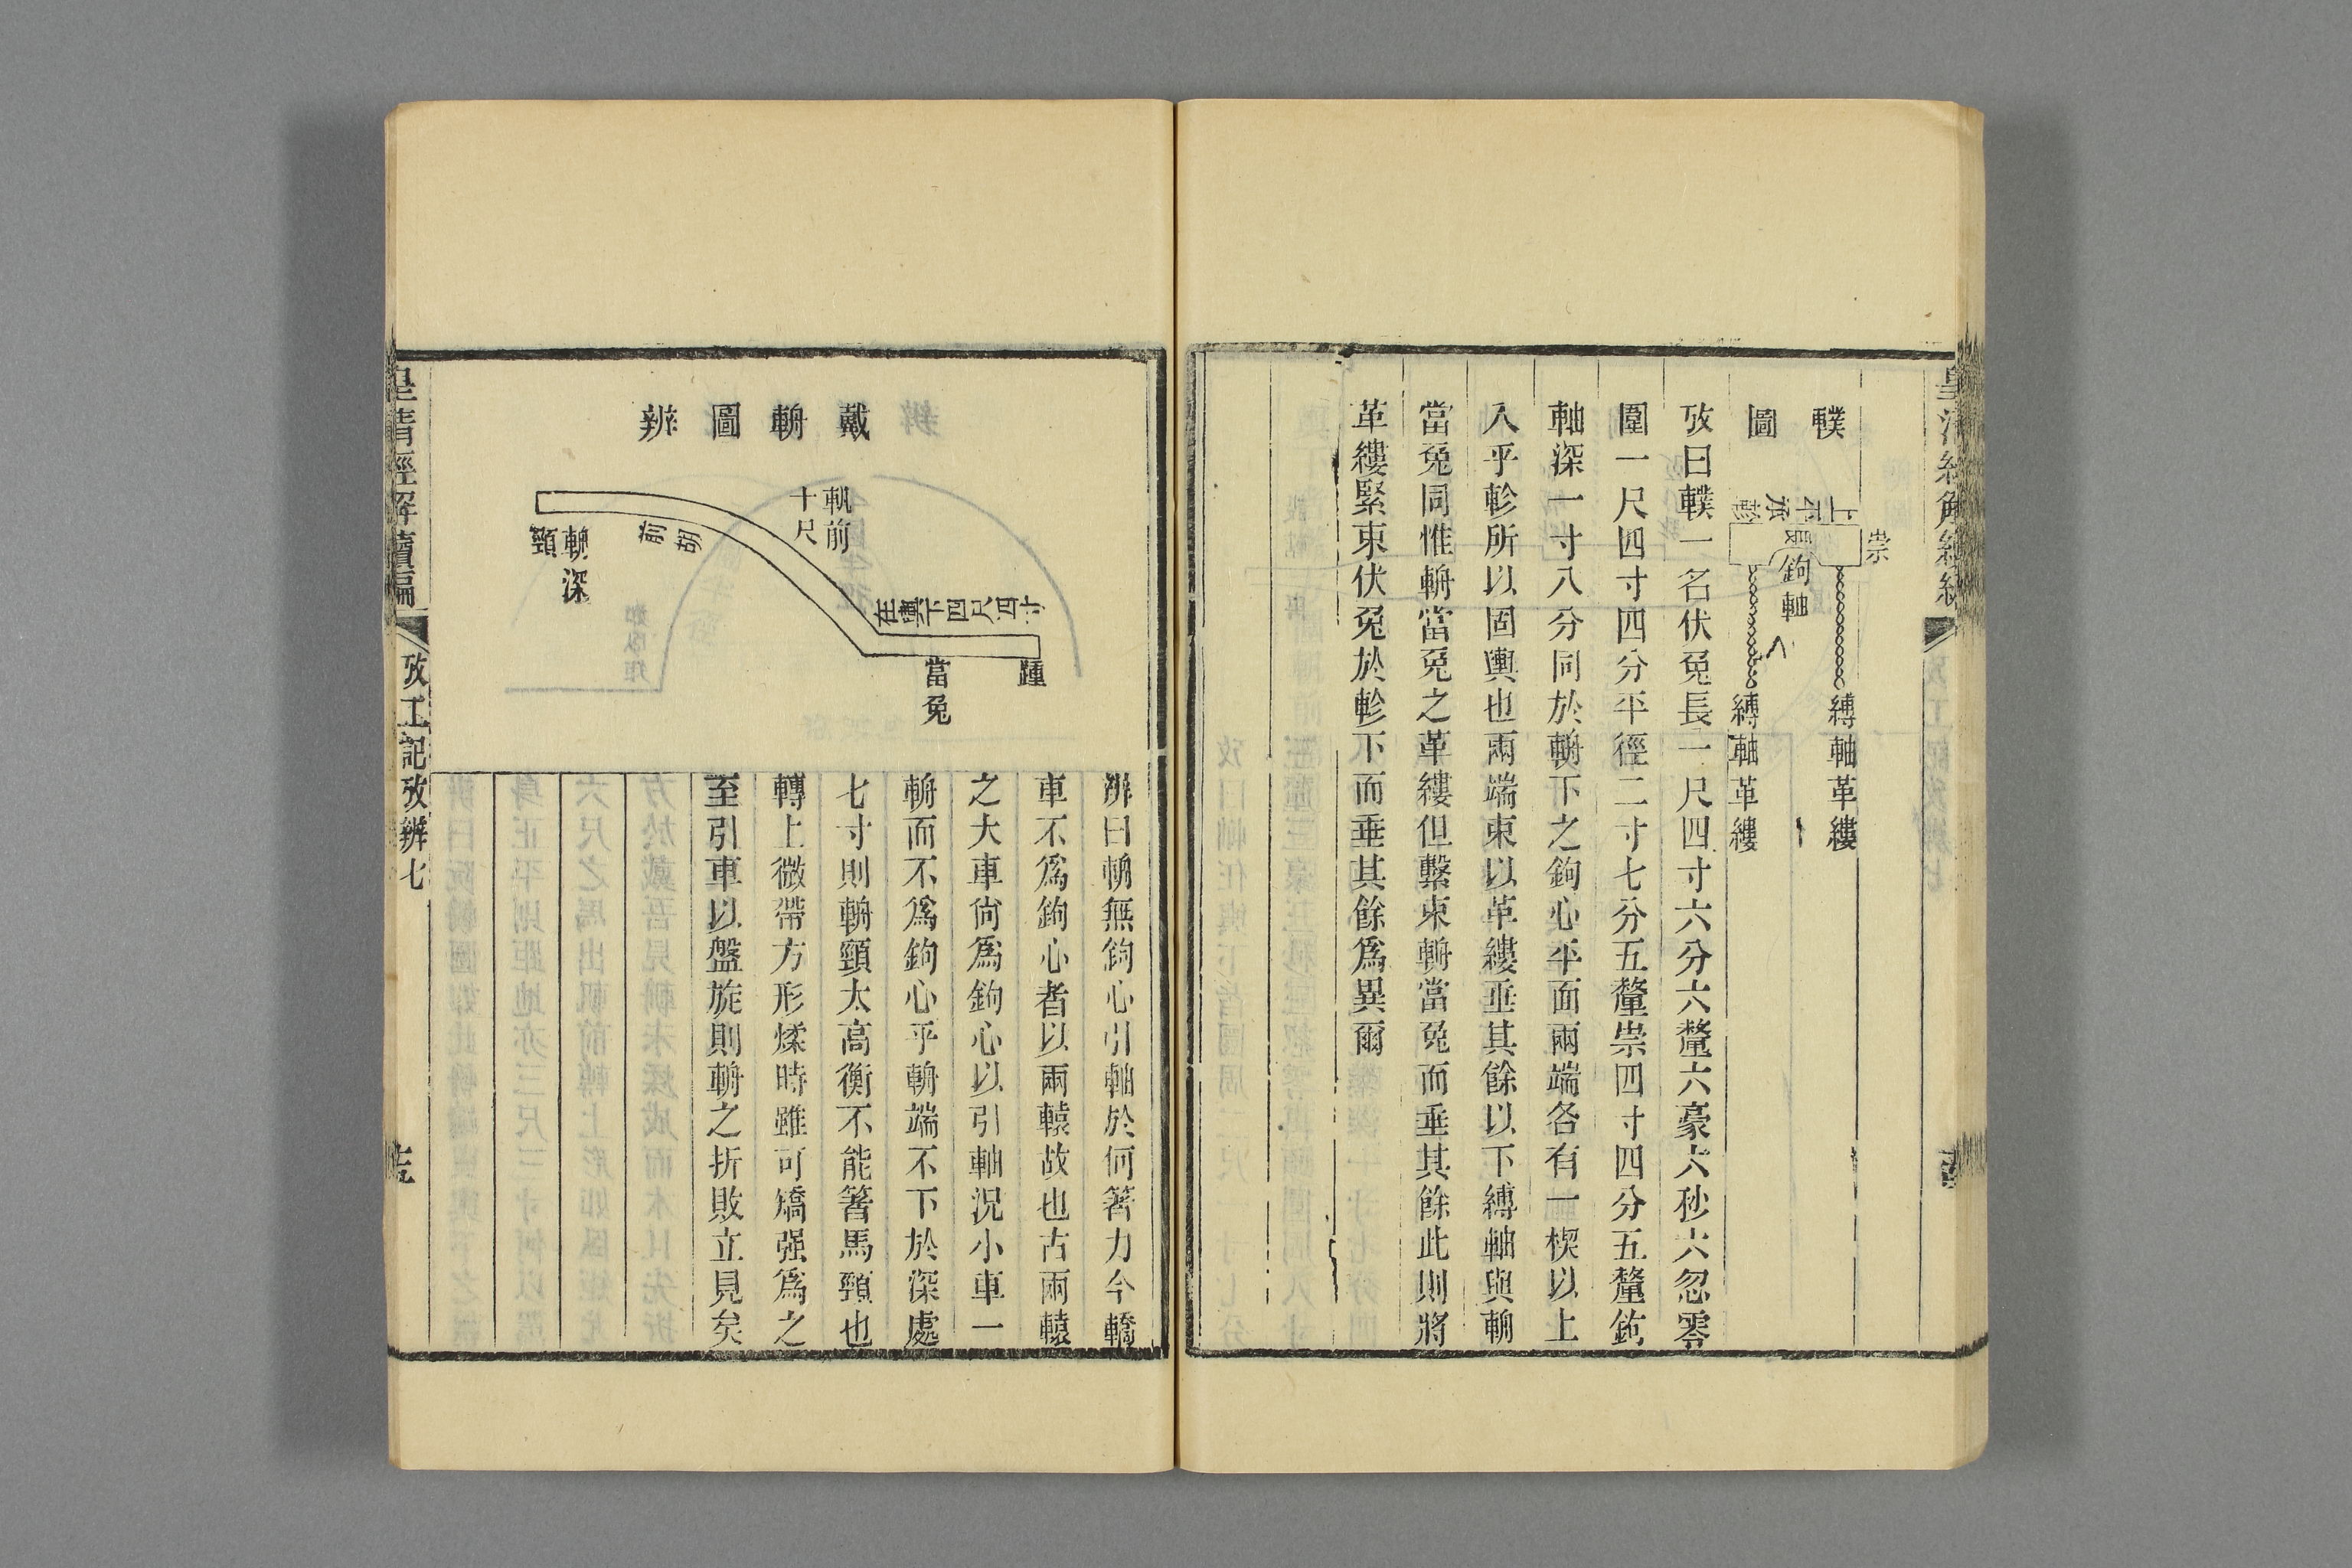 轐
圖
上平承軫
崇
長
鉤軸
縛軸革縷
縛軸革縷
攷曰轐一名伏兔長一尺四寸六分六釐六豪六秒六忽零
圍一尺四寸四分平徑二寸七分五釐崇四寸四分五釐鉤
軸深一寸八分同於輈下之鉤心平面兩端各有一楔以上
入乎軫所以固輿也兩端束以革縷垂其餘以下縛軸與輈
當兔同惟輈當兔之革縷但繫束輈當兔而垂其餘此則將
革縷緊束伏兔於軫下而垂其餘爲異爾
戴輈圖辨
軓前
十尺
輈深
頸
前胡
在輿下四尺四寸
當兔
踵
辨曰輈無鉤心引軸於何箸力今轎
車不爲鉤心者以兩轅故也古兩轅
之大車尙爲鉤心以引軸況小車一
輈而不爲鉤心乎輈端不下於深處
七寸則輈頸太高衡不能箸馬頸也
轉上微帶方形煣時雖可矯强爲之
至引車以盤旋則輈之折敗立見矣
皇清經解續編
攷工記攷辨七